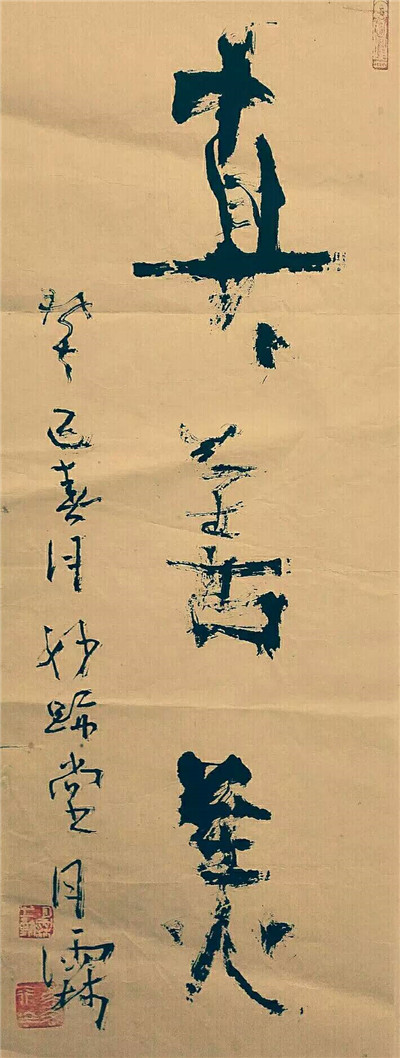 真善美
癸巳春月妙跡堂月霖